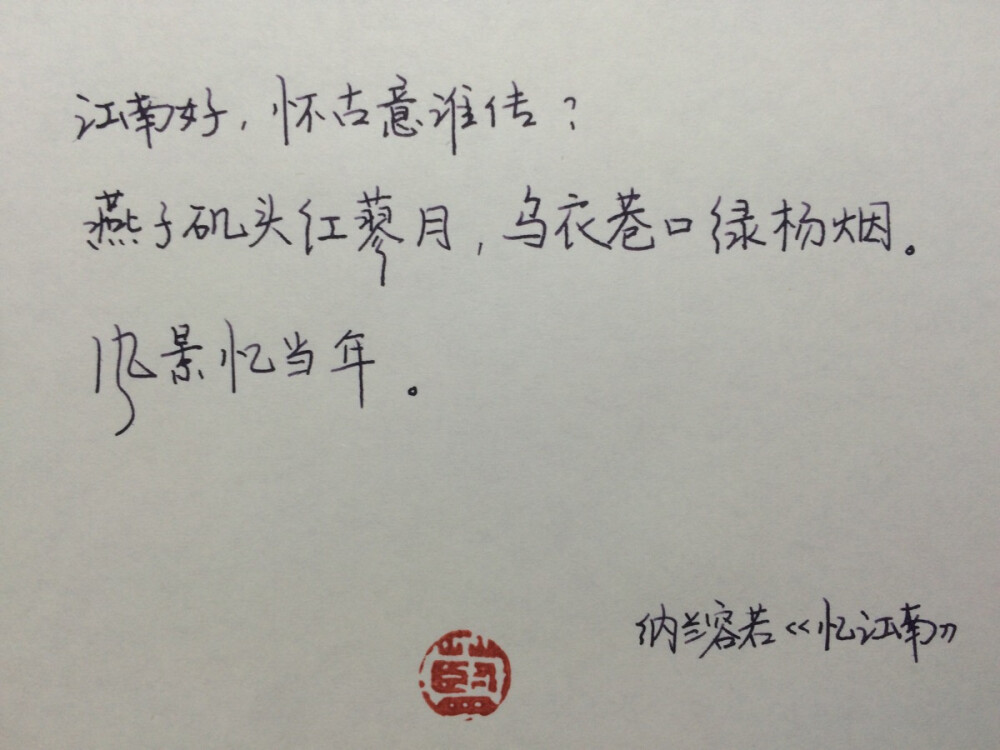 江南好，怀古意谁传？
燕子矶头红蓼月，乌衣巷口绿杨烟。
风景忆当年。
纳兰容若《忆江南》